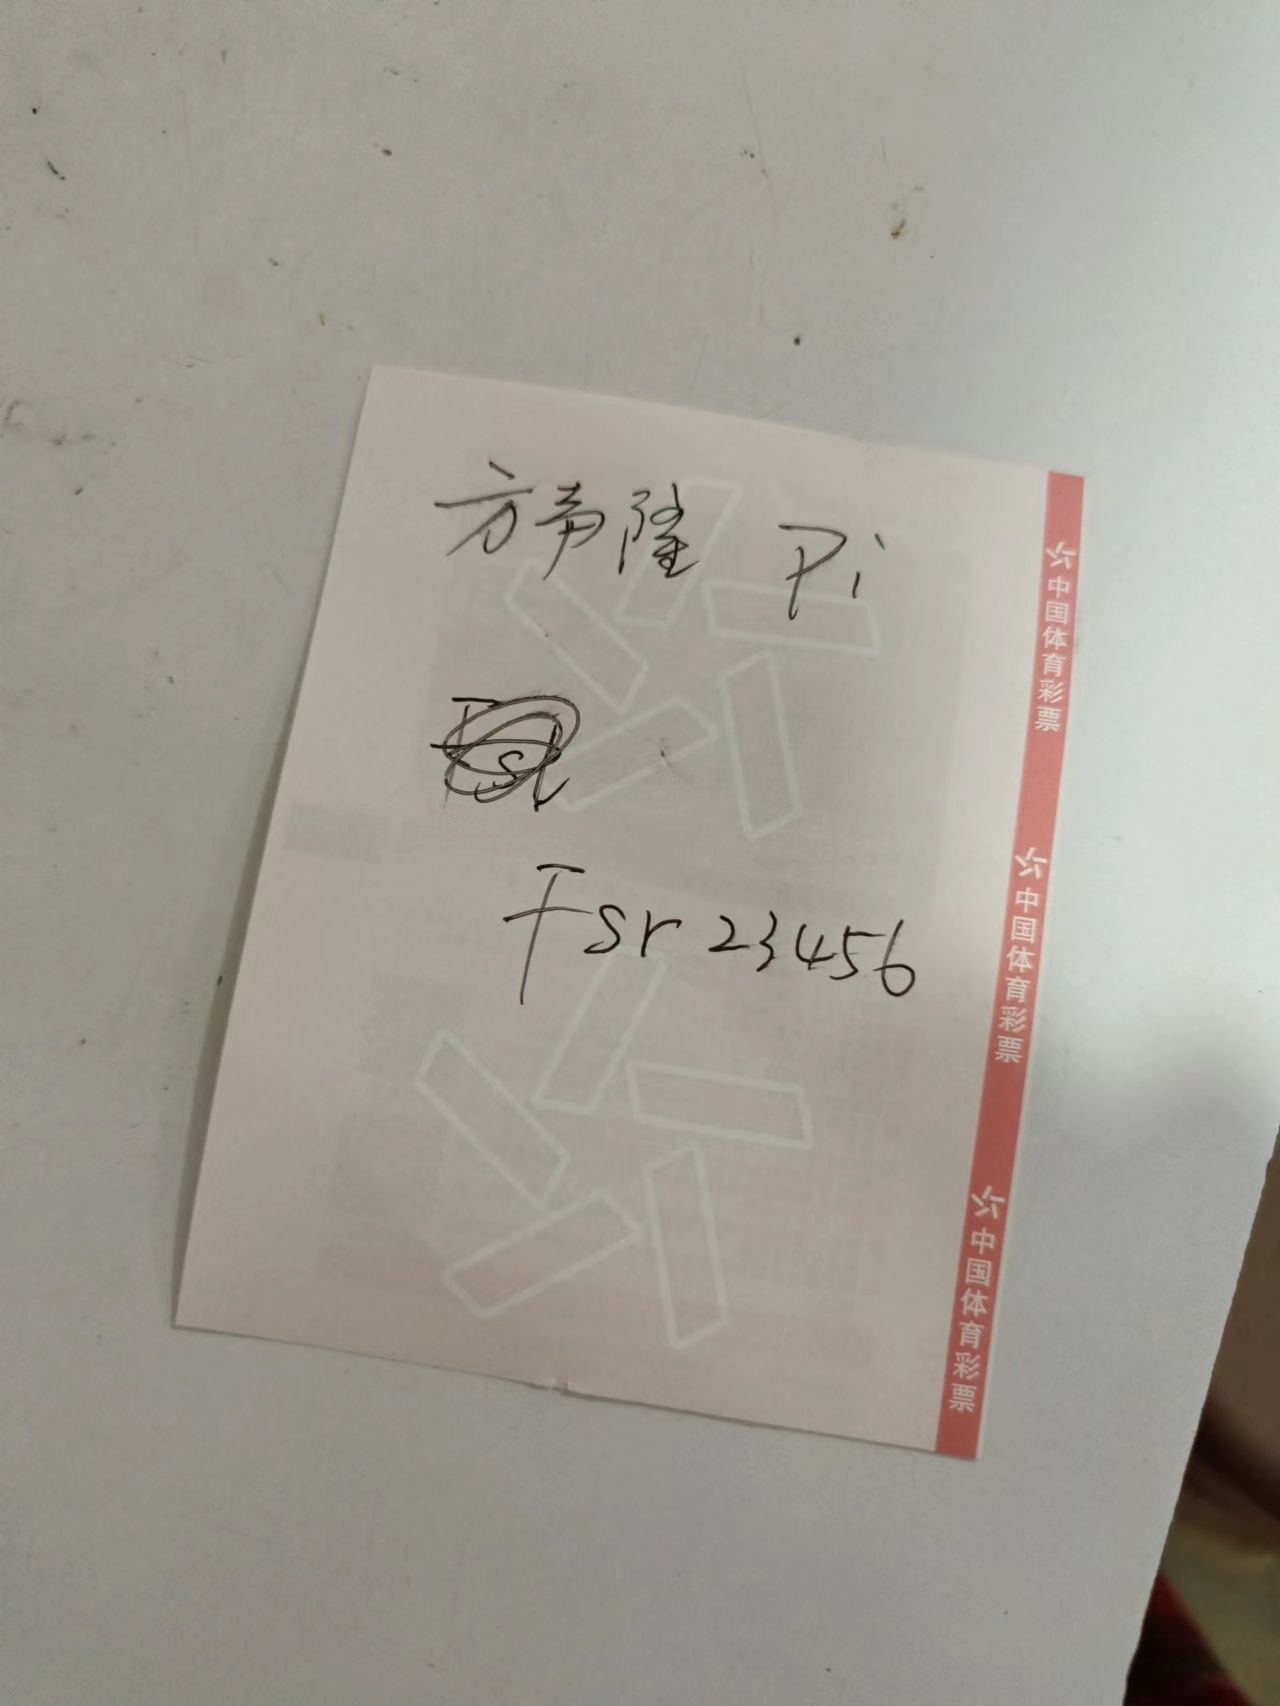 方声隆 Pi
Fsr23456
中国体育彩票
中国体育彩票
中国体育彩票